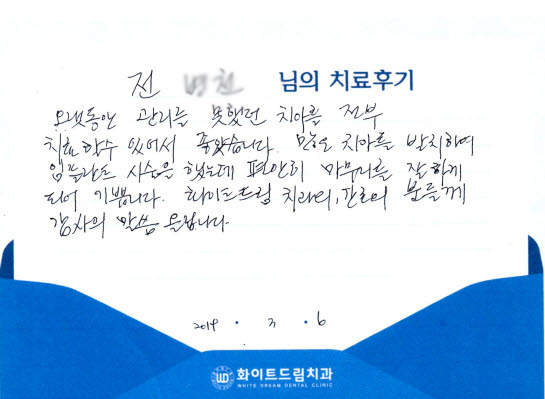 전 님의 치료후기
오랫동안 관리를 못했던 치아를 전부
치료할수 있어서 좋았습니다. 많은 치아를 방치하여
임플란트 시술을 했는데 편안히 마무리를 잘하게
되어 기쁩니다. 화이트드림 치과의, 간호의 분들께
감사의 말씀 올립니다.
2019 . 3 . 6
화이트드림치과
WHITE DREAM DENTAL CLINIC